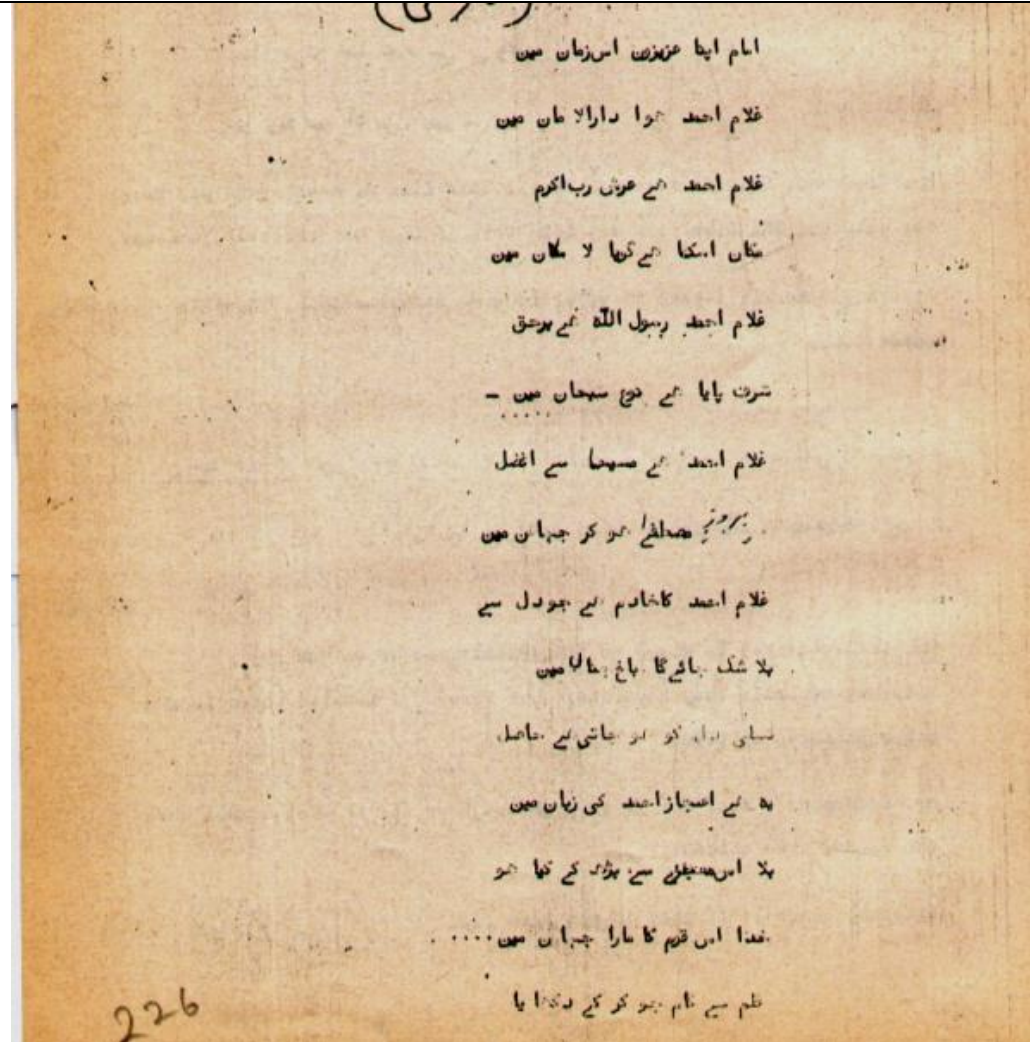 امام اپنا عزیزو اس زمان مین
غلام احمد ہوا دارالا مان مین
غلام احمد ہے عرش رب اکرم
مکاں اسکا ہے گویا لا مکان مین
غلام احمد رسول اللہ ہے برحق
شرف پایا ہے نوع سبحان مین –
غلام احمد ہے مسیحا سے افضل
بروز مصطفےٰ ہو کر جہان مین
غلام احمد کاخادم ہے جو دل سے
بلا شک جائے گا باغ جناں مین
تسلی دل کو ہو جاتی ہے حاصل
یہ ہے اعجاز احمد کی زبان مین
بلا اس معجزے سے بڑھ کے کیا ہو
خدا اس قوم کا مارا جہان مین ....
قلم سے کام جو کر کے دکھا یا
226